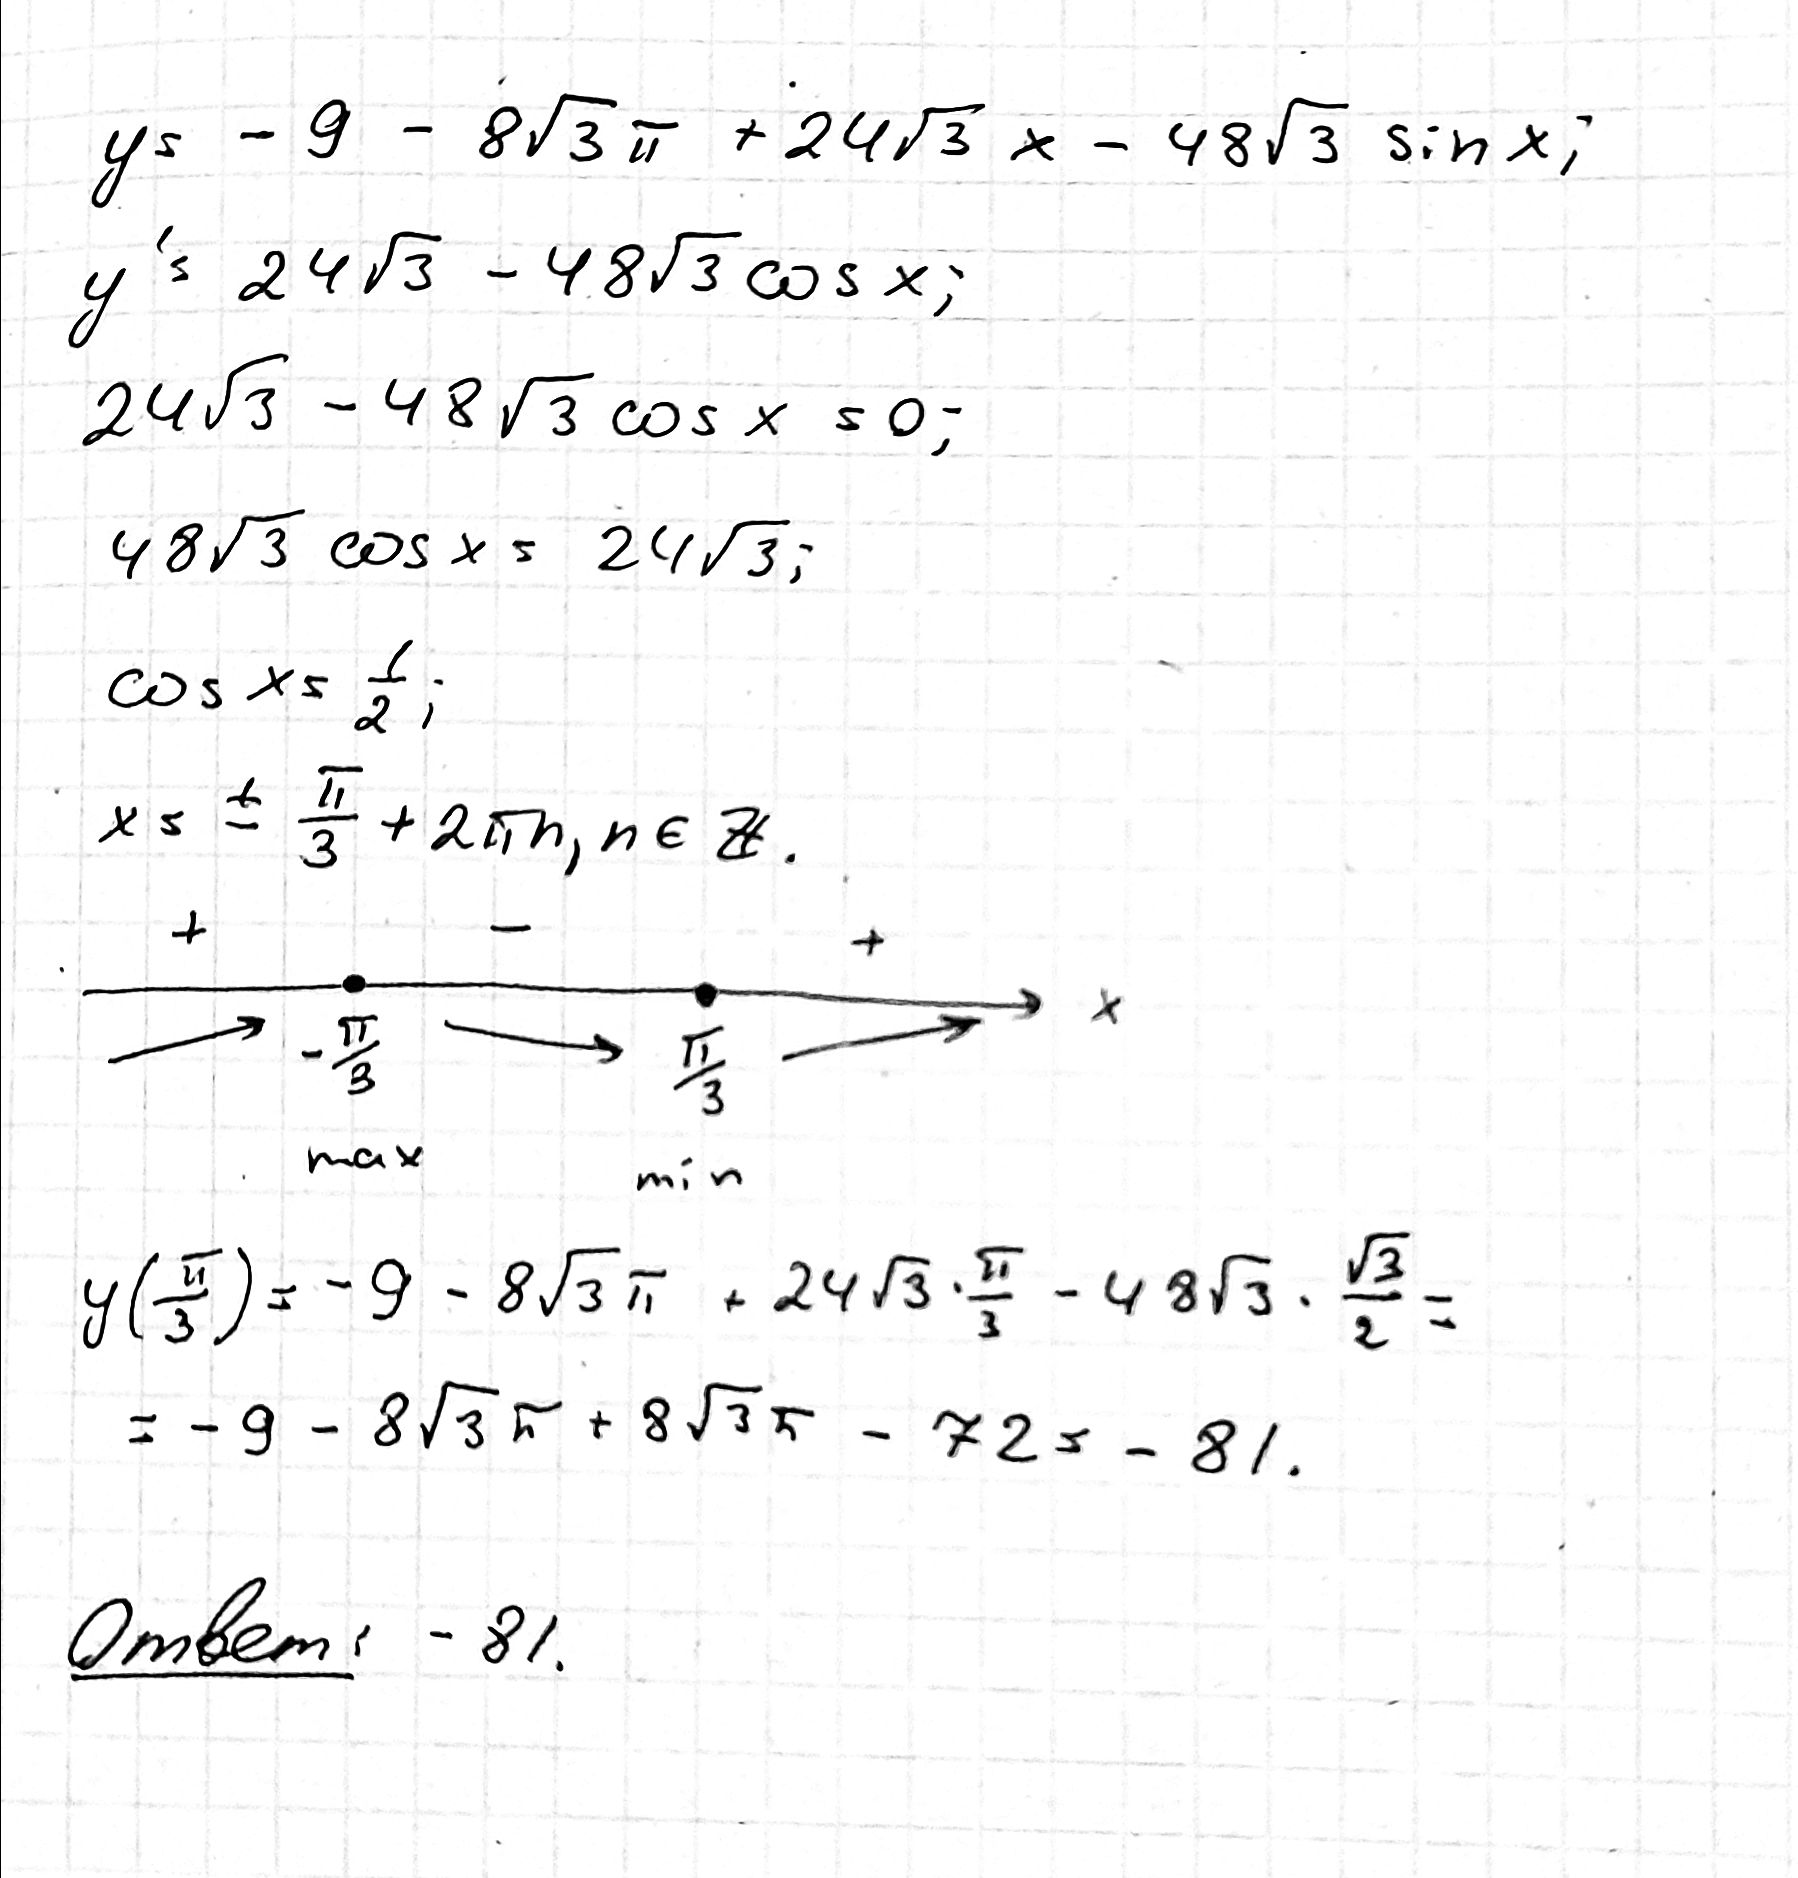 y = -9 - 8√3π + 24√3 x - 48√3 sin x;
y' = 24√3 - 48√3 cos x;
24√3 - 48√3 cos x = 0;
48√3 cos x = 24√3;
cos x = 1/2;
x = ± π/3 + 2πn, n ∈ ℤ.
+ - +
-π/3 π/3 x
max min
y(π/3) = -9 - 8√3π + 24√3 · π/3 - 48√3 · √3/2 =
= -9 - 8√3π + 8√3π - 72 = -81.
Ответ: -81.